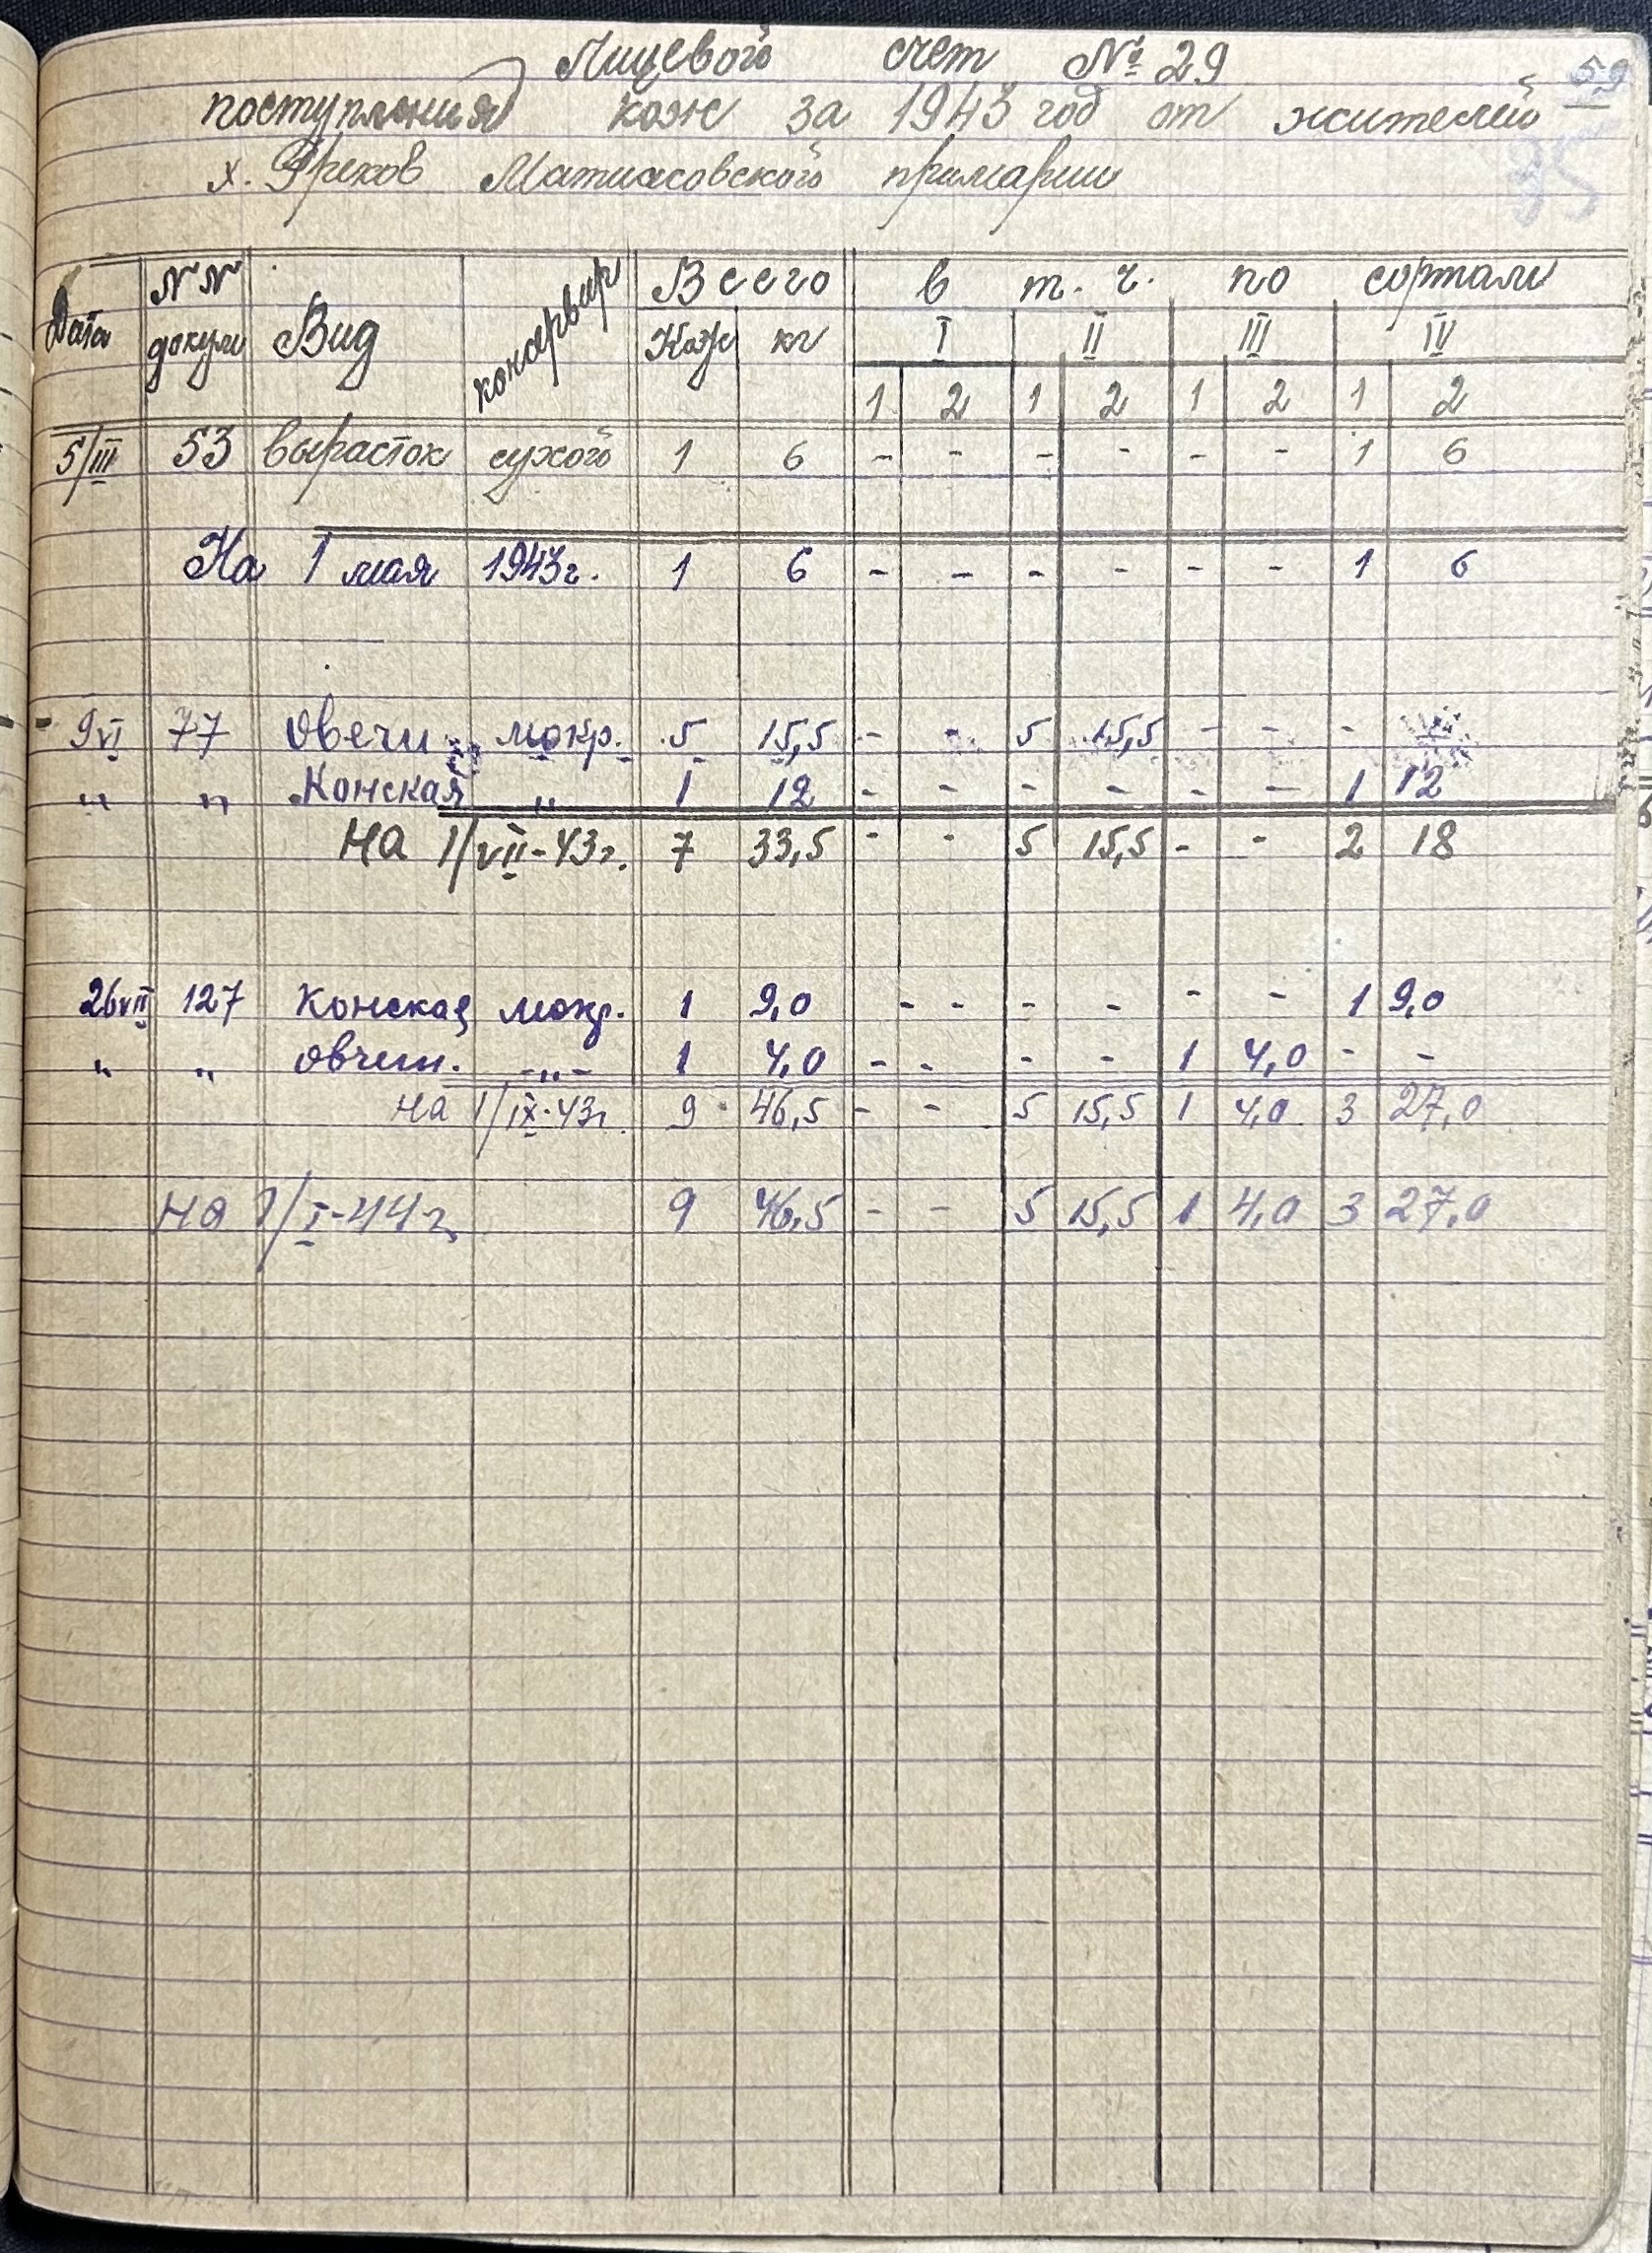 Лицевой счет № 29
59
поступления кож за 1943 год от жителей
35
х. Греков Матиасовского примарии
Дата №№ докум Вид консервир Всего в т. ч. по сортам
Кож кг I II III IV
1 2 1 2 1 2 1 2
5/III 53 вырасток сухого 1 6 - - - - - - 1 6
На 1 мая 1943г. 1 6 - - - - - - 1 6
9VI 77 Овечи мокр. 5 15,5 - - 5 15,5 - - -
" " Конская " 1 12 - - - - - - 1 12
На 1/VII-43г. 7 33,5 - - 5 15,5 - - 2 18
26VII 127 Конская мокр. 1 9,0 - - - - - - 1 9,0
" " овчин. -"- 1 4,0 - - - - 1 4,0 - -
на 1/IX-43г. 9 46,5 - - 5 15,5 1 4,0 3 27,0
на 1/I-44г. 9 46,5 - - 5 15,5 1 4,0 3 27,0